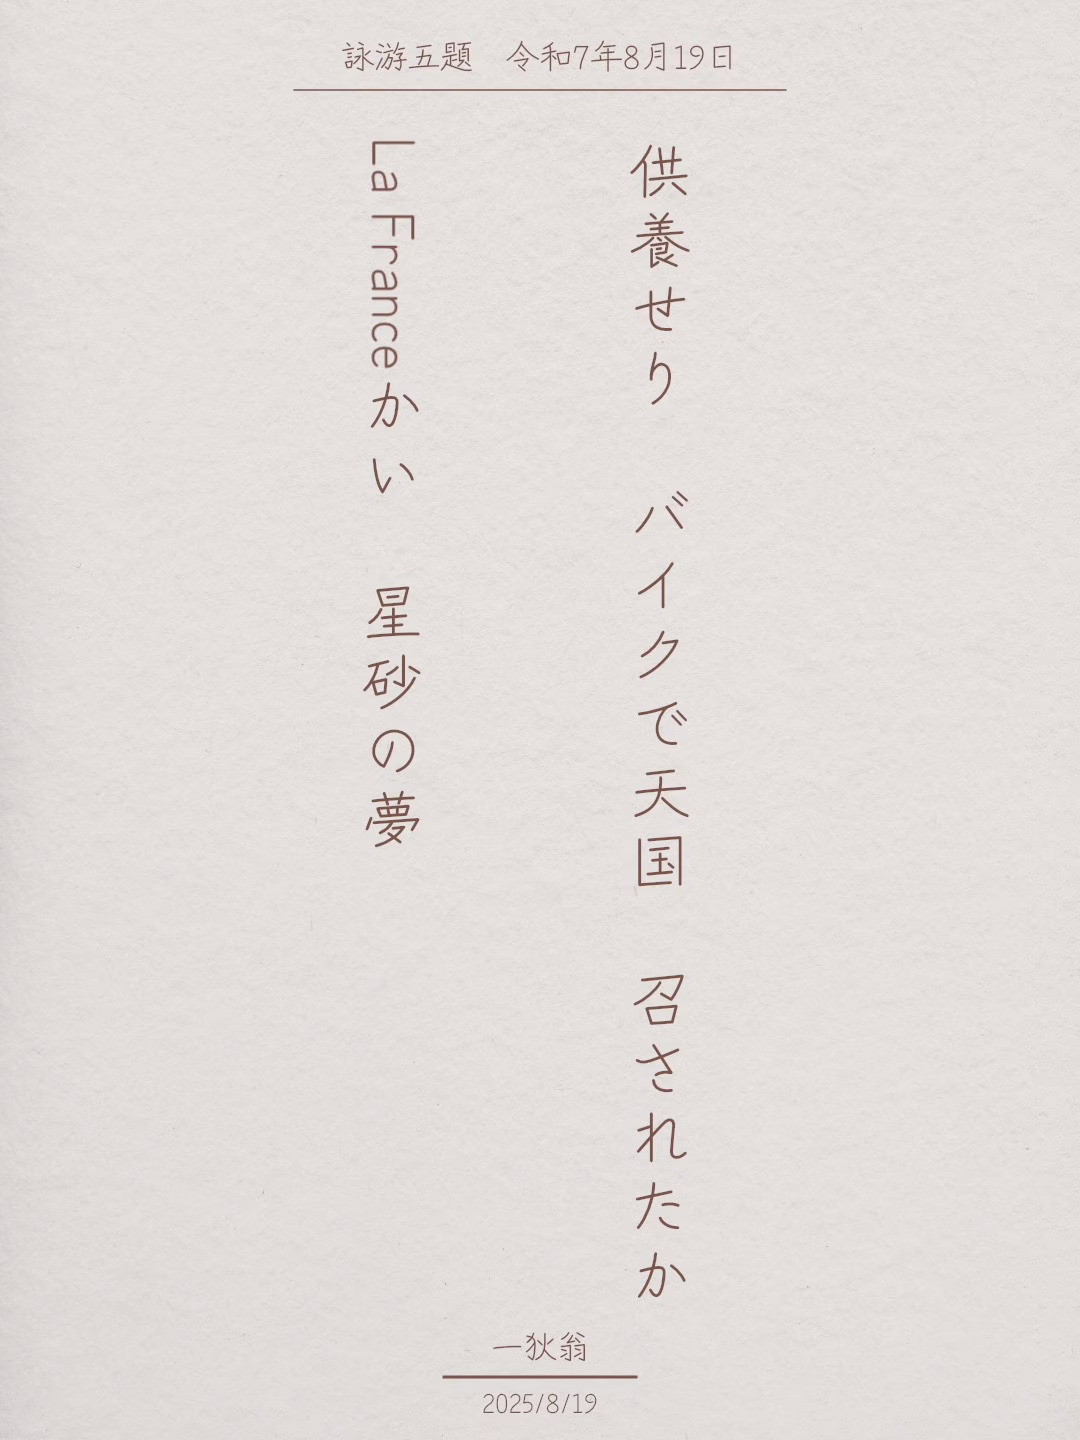 詠游五題　令和7年8月19日
供養せり　バイクで天国　召されたか
La Franceかい　星砂の夢
一狄翁
2025/8/19